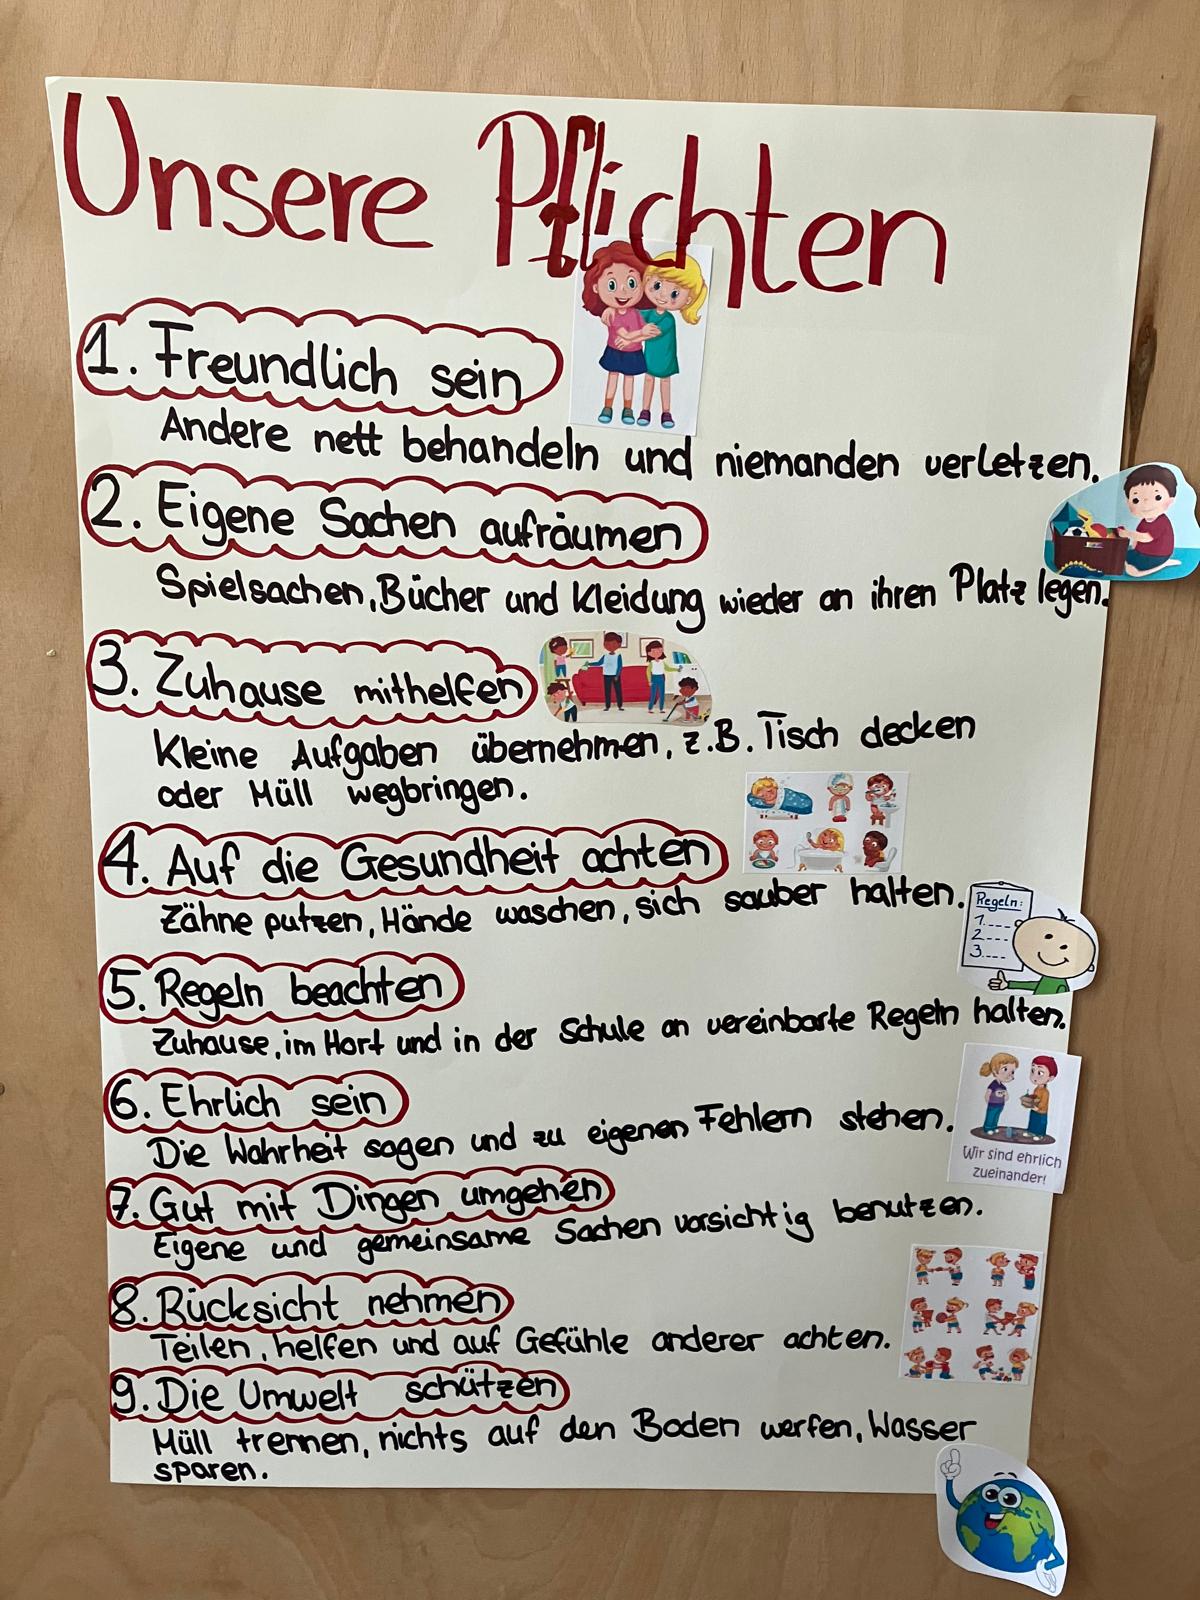 Unsere Pflichten
1. Freundlich sein
Andere nett behandeln und niemanden verletzen.
2. Eigene Sachen aufräumen
Spielsachen, Bücher und Kleidung wieder an ihren Platz legen.
3. Zuhause mithelfen
Kleine Aufgaben übernehmen, z.B. Tisch decken
oder Müll wegbringen.
4. Auf die Gesundheit achten
Zähne putzen, Hände waschen, sich sauber halten.
Regeln:
1.----
2.----
3.----
5. Regeln beachten
Zuhause, im Hort und in der Schule an vereinbarte Regeln halten.
6. Ehrlich sein
Die Wahrheit sagen und zu eigenen Fehlern stehen.
Wir sind ehrlich
zueinander!
7. Gut mit Dingen umgehen
Eigene und gemeinsame Sachen vorsichtig benutzen.
8. Rücksicht nehmen
Teilen, helfen und auf Gefühle anderer achten.
9. Die Umwelt schützen
Müll trennen, nichts auf den Boden werfen, Wasser
sparen.